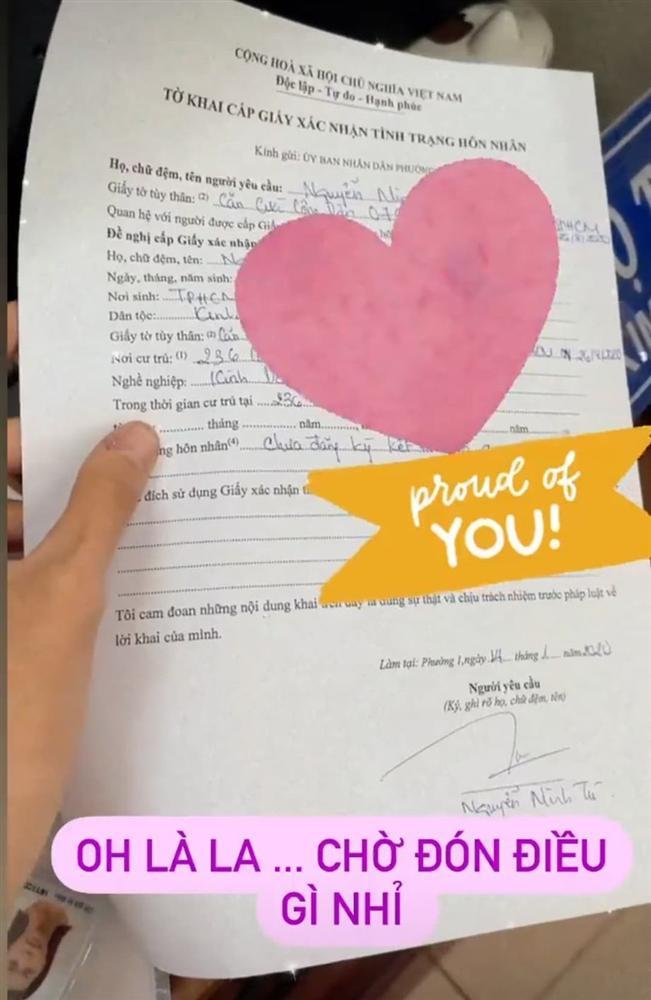 CỘNG HOÀ XÃ HỘI CHỦ NGHĨA VIỆT NAM
Độc lập - Tự do - Hạnh phúc
TỜ KHAI CẤP GIẤY XÁC NHẬN TÌNH TRẠNG HÔN NHÂN
Kính gửi: ỦY BAN NHÂN DÂN PHƯỜNG
Họ, chữ đệm, tên người yêu cầu: Nguyễn
Giấy tờ tùy thân: (2) Căn Cước Công Dân
Quan hệ với người được cấp
Đề nghị cấp Giấy xác nhận
Họ, chữ đệm, tên:
Ngày, tháng, năm sinh:
Nơi sinh: TPHCM
Dân tộc: Kinh
Giấy tờ tùy thân: (2) Căn
Nơi cư trú: (1) 236
Nghề nghiệp: Kinh
Trong thời gian cư trú tại 236
tháng năm năm
hôn nhân(4) Chưa đăng ký kết
đích sử dụng Giấy xác nhận
proud of
YOU!
Tôi cam đoan những nội dung khai trên đây là đúng sự thật và chịu trách nhiệm trước pháp luật về
lời khai của mình.
Làm tại: Phường 1, ngày 14 tháng 1 năm 2020
Người yêu cầu
(Ký, ghi rõ họ, chữ đệm, tên)
Nguyễn Minh Tú
OH LÀ LA ... CHỜ ĐÓN ĐIỀU
GÌ NHỈ